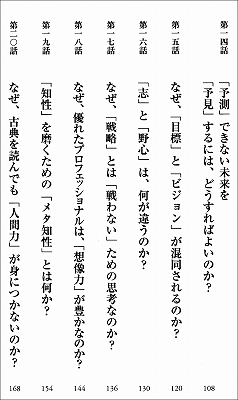 第一四話
「予測」できない未来を
「予見」するには、どうすればよいのか？
108
第一五話
なぜ、「目標」と「ビジョン」が混同されるのか？
120
第一六話
「志」と「野心」は、何が違うのか？
130
第一七話
なぜ、「戦略」とは「戦わない」ための思考なのか？
136
第一八話
なぜ、優れたプロフェッショナルは、「想像力」が豊かなのか？
144
第一九話
「知性」を磨くための「メタ知性」とは何か？
154
第二〇話
なぜ、古典を読んでも「人間力」が身につかないのか？
168